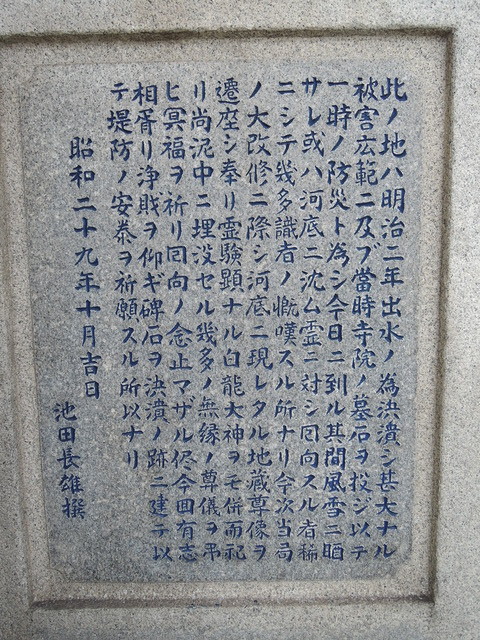 此ノ地ハ明治二年出水ノ為洪潰シ甚大ナル
被害広範ニ及ブ當時寺院ノ墓石ヲ投ジ以テ
一時ノ防災ト為シ今日ニ到ル其間風雪ニ晒
サレ或ハ河底ニ沈ム霊ニ対シ回向スル者稀
ニシテ幾多識者ノ慨嘆スル所ナリ今次当局
ノ大改修ニ際シ河底ニ現レタル地蔵尊像ヲ
遷座シ奉リ霊験顕ナル白龍大神ヲモ併而祀
リ尚泥中ニ埋没セル幾多ノ無縁ノ尊儀ヲ弔
ヒ冥福ヲ祈リ回向ノ念止マザル侭今回有志
相胥リ浄財ヲ仰ギ碑石ヲ決潰ノ跡ニ建テ以
テ堤防ノ安泰ヲ祈願スル所以ナリ
昭和二十九年十月吉日
池田長雄撰